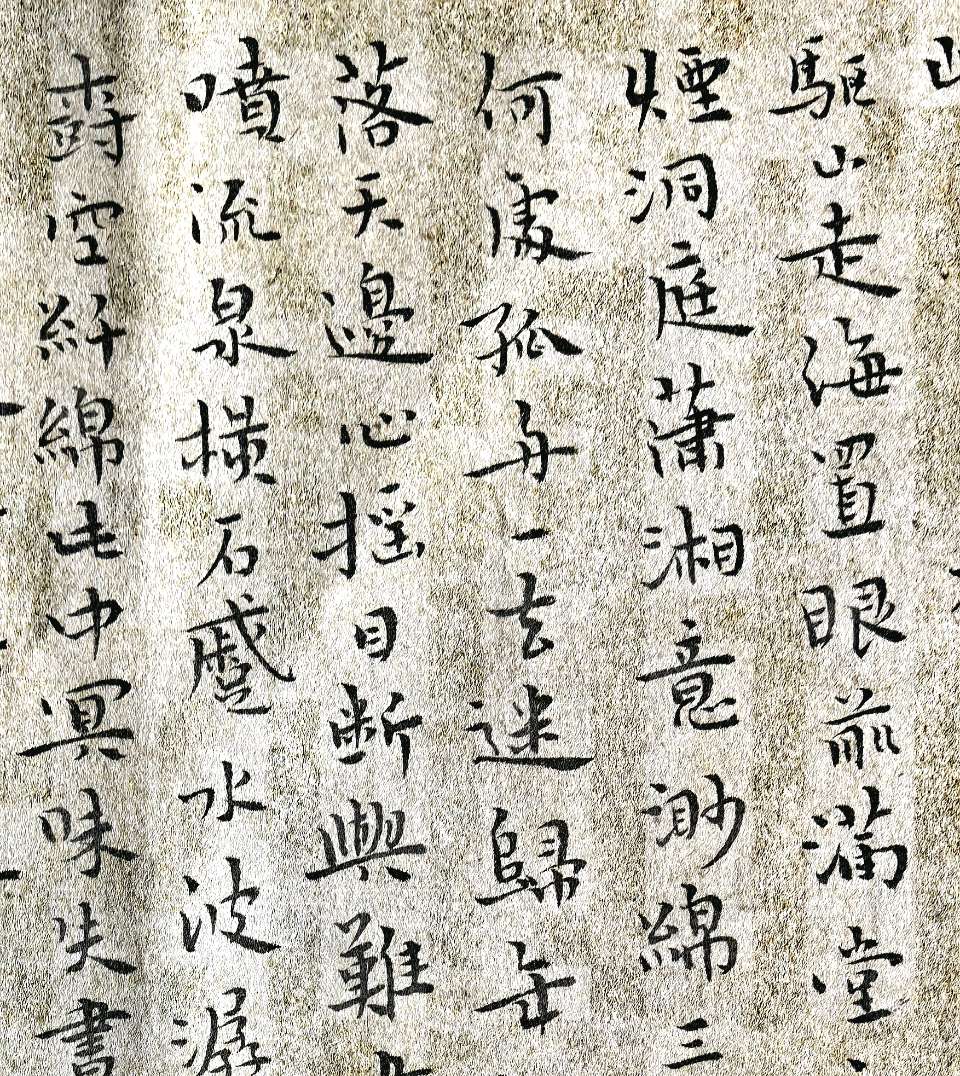 驅山走海置眼前滿堂
煙洞庭瀟湘意渺綿三
何處孤舟一去迷歸年
落天邊心搖目斷興難
噴流泉橫石蹙水波潺
樹空綿此中冥昧失書